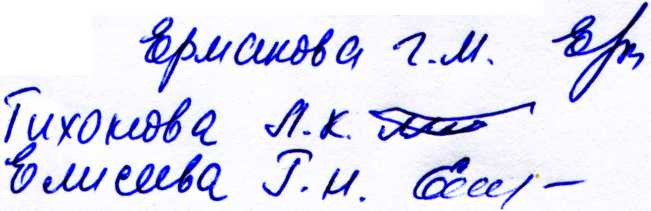 Ермакова Г.М.
Тихонова Л.К.
Елисеева Г.Н.